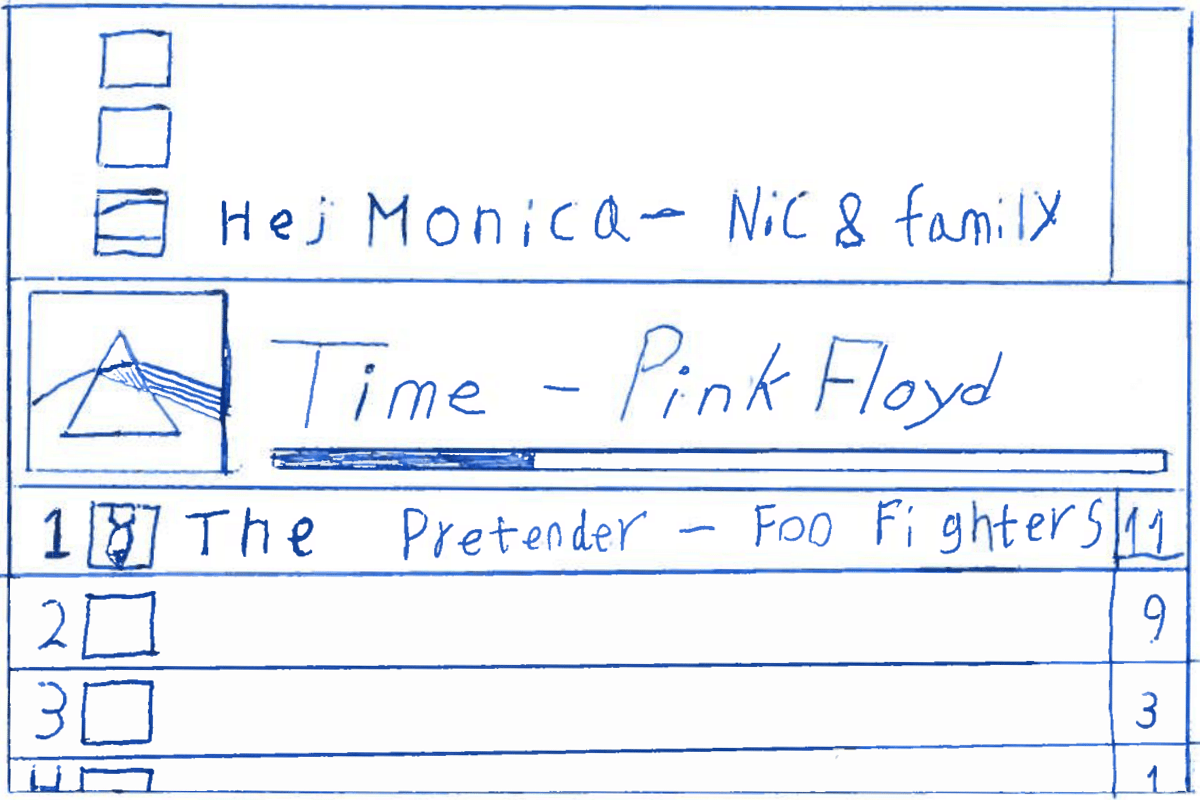 Hej Monica - Nic & family
Time - Pink Floyd
1 The Pretender - Foo Fighters 11
2 9
3 3
4 1